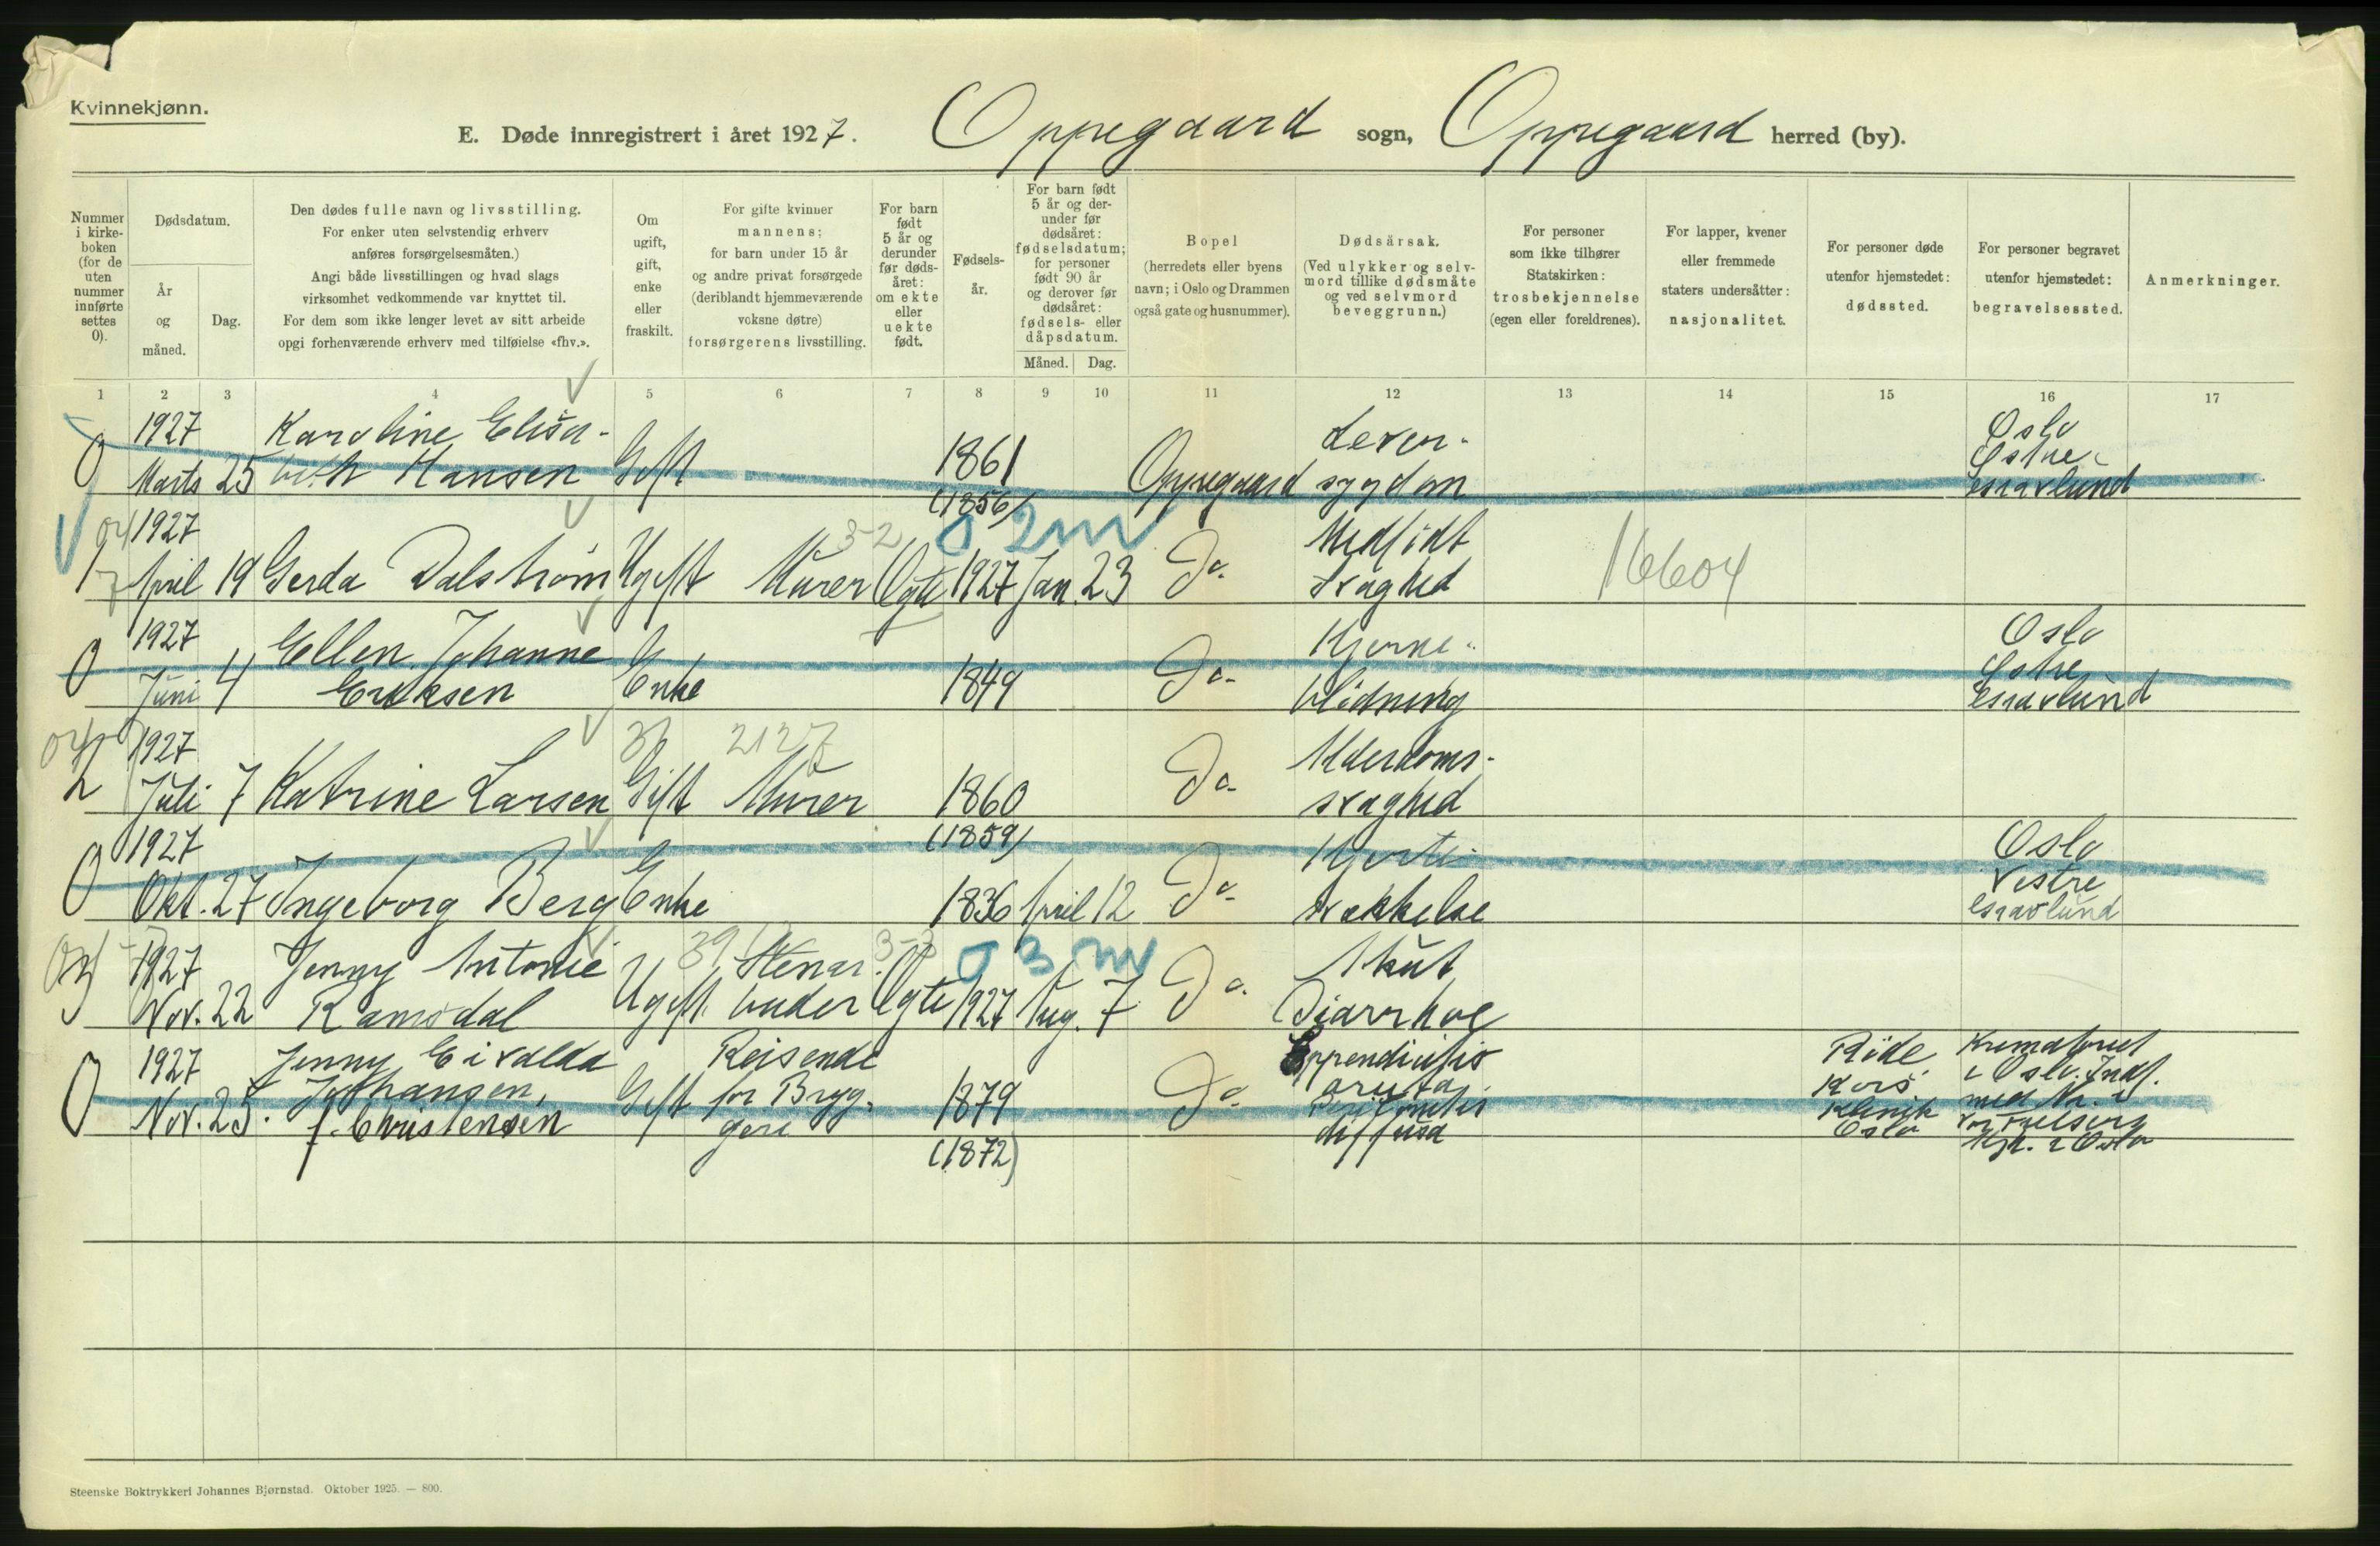 Kvinnekjønn.
E. Døde innregistrert i året 1927. Oppegaard sogn, Oppegaard herred (by).
Nummer
i kirke-
boken
(for de
uten
nummer
innførte
settes
0).
Dødsdatum.
År
og
måned.
Dag.
Den dødes fulle navn og livsstilling.
For enker uten selvstendig erhverv
anføres forsørgelsesmåten.)
Angi både livsstillingen og hvad slags
virksomhet vedkommende var knyttet til.
For dem som ikke lenger levet av sitt arbeide
opgi forhenværende erhverv med tilføielse «fhv.».
Om
ugift,
gift,
enke
eller
fraskilt.
For gifte kvinner
mannens;
for barn under 15 år
og andre privat forsørgede
(deriblandt hjemmeværende
voksne døtre)
forsørgerens livsstilling.
For barn
født
5 år og
derunder
før døds-
året:
om ekte
eller
uekte
født.
Fødsels-
år.
For barn født
5 år og der-
under før
dødsåret:
fødselsdatum;
for personer
født 90 år
og derover før
dødsåret:
fødsels- eller
dåpsdatum.
Måned. Dag.
Bopel
(herredets eller byens
navn; i Oslo og Drammen
også gate og husnummer).
Dødsårsak.
(Ved ulykker og selv-
mord tillike dødsmåte
og ved selvmord
beveggrunn.)
For personer
som ikke tilhører
Statskirken:
trosbekjennelse
(egen eller foreldrenes).
For lapper, kvener
eller fremmede
staters undersåtter:
nasjonalitet.
For personer døde
utenfor hjemstedet:
dødssted.
For personer begravet
utenfor hjemstedet:
begravelsessted.
Anmerkninger.
1 2 3 4 5 6 7 8 9 10 11 12 13 14 15 16 17
1927 Karoline Elisa- Lever- Oslo
0 Marts 25 beth Hansen Gift 1861 Oppegaard sygdom Østre
(1856) Gravlund
1927 3-2 0 2 m Medfødt
1 April 19 Gerda Dalstrøm Ugift Murer Ægte 1927 Jan. 23 Do. svaghed 16604
1927 Ellen Johanne Hjerne- Oslo
0 Juni 4 Eriksen Enke 1849 Do. blødning Østre
Gravlund
1927 2127 Alderdoms-
2 Juli 7 Katrine Larsen Gift Murer 1860 Do. svaghed
1927 (1859) Hjerte- Oslo
0 Okt. 27 Ingeborg Berg Enke 1836 April 12 Do. svekkelse Vestre
Gravlund
1927 Jenny Antonie Stenar- 3-3 0 3 m Akut
3 Nov. 22 Ramsdal Ugift. beider Ægte 1927 Aug. 7 Do. Diarrhoe
1927 Jenny Eivalda Reisende Appendicitis Røde Krematoriet
0 Nov. 25. Johansen, Gift for Bryg- 1879 Do. acuta. Kors i Oslo. Indf.
f. Christensen geri Peritonitis Klinik med Nr. i
(1872) diffusa Oslo Vor Frelsers
Kjk. i Oslo
Steenske Boktrykkeri Johannes Bjørnstad. Oktober 1925. — 800.